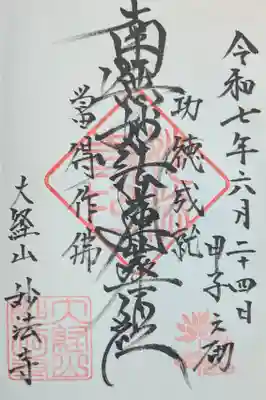 令和七年六月二十四日
甲子之砌
功德成就
南無妙法蓮華経
當得作佛
大経山 妙法寺